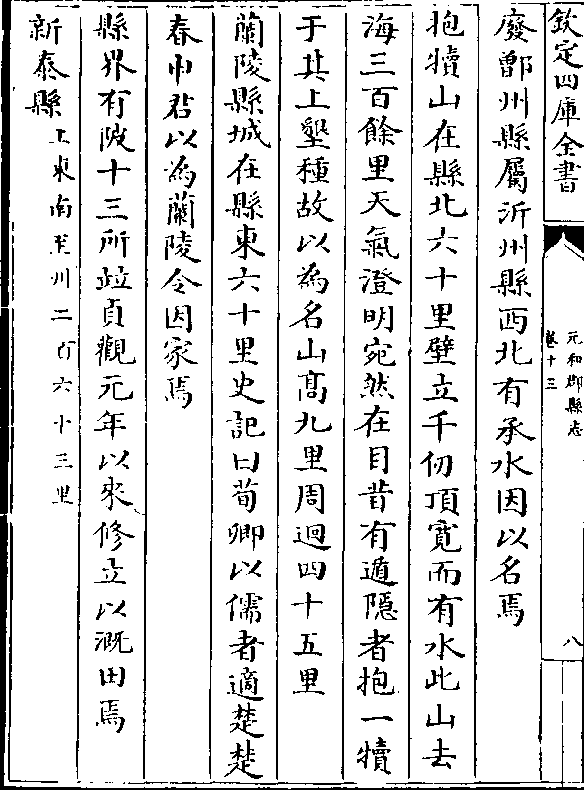 欽定四庫全書
元和郡縣志
卷十三
八
廢鄫州縣屬沂州縣西北有承水因以名焉
抱犢山在縣北六十里壁立千仞頂寛而有水此山去
海三百餘里天氣澄明宛然在目昔有遁隠者抱一犢
于其上墾種故以為名山髙九里周迴四十五里
蘭陵縣城在縣東六十里史記曰荀卿以儒者適楚楚
春申君以為蘭陵令因家焉
縣界有陂十三所竝貞觀元年以來修立以溉田焉
新泰縣上東南至州二百六十三里